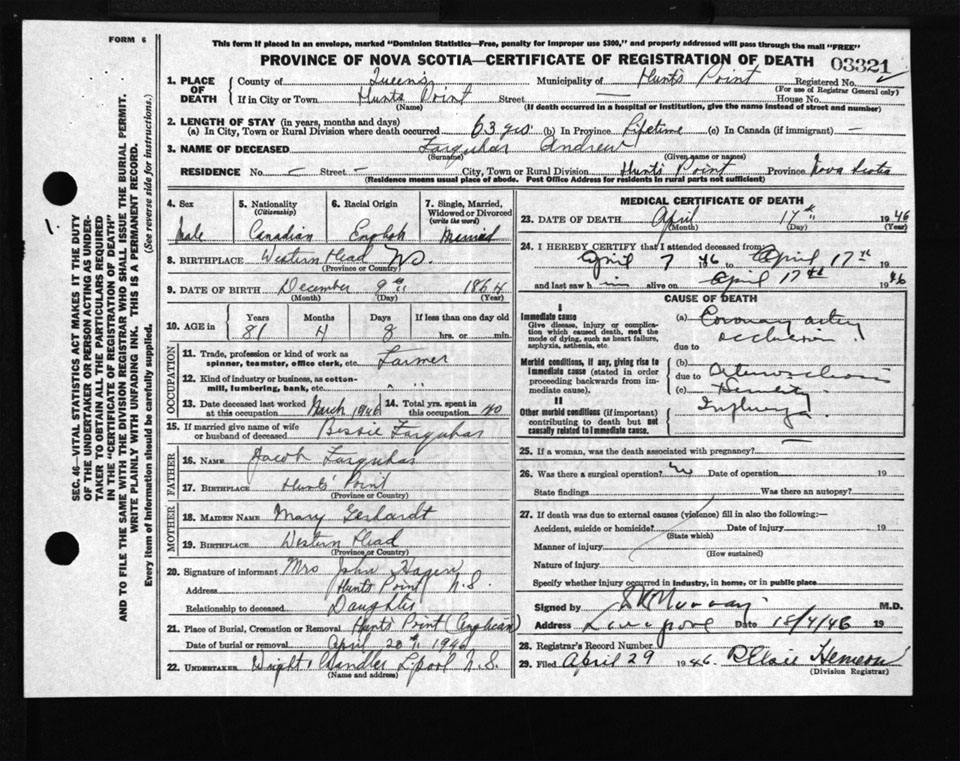 FORM 6
This form if placed in an envelope, marked "Dominion Statistics—Free, penalty for improper use $300," and properly addressed will pass through the mail "FREE"
PROVINCE OF NOVA SCOTIA—CERTIFICATE OF REGISTRATION OF DEATH 03321
1. PLACE OF DEATH County of Queens Municipality of Hunts Point Registered No.
(For use of Registrar General only)
If in City or Town Hunts Point Street — House No.
(Name) (If death occurred in a hospital or institution, give the name instead of street and number)
2. LENGTH OF STAY (in years, months and days)
(a) In City, Town or Rural Division where death occurred 63 yrs. (b) In Province Lifetime (c) In Canada (if immigrant) —
3. NAME OF DECEASED Farquhar Andrew
(Surname) (Given name or names)
RESIDENCE No. — Street — City, Town or Rural Division Hunts Point Province Nova Scotia
(Residence means usual place of abode. Post Office Address for residents in rural parts not sufficient)
4. Sex 5. Nationality (Citizenship) 6. Racial Origin 7. Single, Married, Widowed or Divorced (write the word)
Male Canadian English Married
8. BIRTHPLACE Western Head N.S.
(Province or Country)
9. DATE OF BIRTH December 9th 1864
(Month) (Day) (Year)
10. AGE in Years Months Days If less than one day old
81 4 8 hrs. or min.
OCCUPATION
11. Trade, profession or kind of work as spinner, teamster, office clerk, etc. Farmer
12. Kind of industry or business, as cotton-mill, lumbering, bank, etc. " "
13. Date deceased last worked at this occupation March 1946 14. Total yrs. spent in this occupation 40
15. If married give name of wife or husband of deceased Bessie Farquhar
FATHER
16. NAME Jacob Farquhar
17. BIRTHPLACE Hunts Point
(Province or Country)
MOTHER
18. MAIDEN NAME Mary Gerhardt
19. BIRTHPLACE Western Head
(Province or Country)
20. Signature of informant Mrs John Hagen
Address Hunts Point N.S.
Relationship to deceased Daughter
21. Place of Burial, Cremation or Removal Hunts Point (Anglican)
Date of burial or removal April 20th 1946
22. UNDERTAKER Wright Chandler L'pool N.S.
(Name and address)
MEDICAL CERTIFICATE OF DEATH
23. DATE OF DEATH April 17th 1946
(Month) (Day) (Year)
24. I HEREBY CERTIFY that I attended deceased from:
April 7 46 to April 17th 19
and last saw him alive on April 17th 1946
CAUSE OF DEATH
I
Immediate cause (a) Coronary artery occlusion
Give disease, injury or complication which caused death, not the mode of dying, such as heart failure, asphyxia, asthenia, etc.
due to
Morbid conditions, if any, giving rise to immediate cause (stated in order proceeding backwards from immediate cause).
(b)
due to
(c)
II
Other morbid conditions (if important) contributing to death but not causally related to immediate cause. Influenza
25. If a woman, was the death associated with pregnancy?
26. Was there a surgical operation? No Date of operation 19
State findings Was there an autopsy?
27. If death was due to external causes (violence) fill in also the following:—
Accident, suicide or homicide? Date of injury 19
(State which)
Manner of injury
(How sustained)
Nature of injury
Specify whether injury occurred in industry, in home, or in public place
Signed by Murray M.D.
Address Liverpool Date 18/4/46 19
28. Registrar's Record Number
29. Filed April 29 1946
(Division Registrar)
SEC. 46—VITAL STATISTICS ACT MAKES IT THE DUTY
OF THE UNDERTAKER OR PERSON ACTING AS UNDER-
TAKER TO OBTAIN ALL THE PARTICULARS REQUIRED
IN THE "CERTIFICATE OF REGISTRATION OF DEATH"
AND TO FILE THE SAME WITH THE DIVISION REGISTRAR WHO SHALL ISSUE THE BURIAL PERMIT.
WRITE PLAINLY WITH UNFADING INK. THIS IS A PERMANENT RECORD.
Every item of information should be carefully supplied. (See reverse side for instructions.)